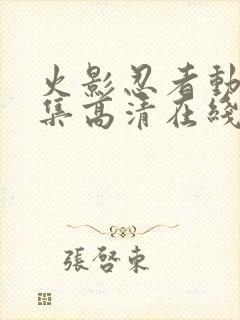 火影忍者動
集高清在綫
張啓東